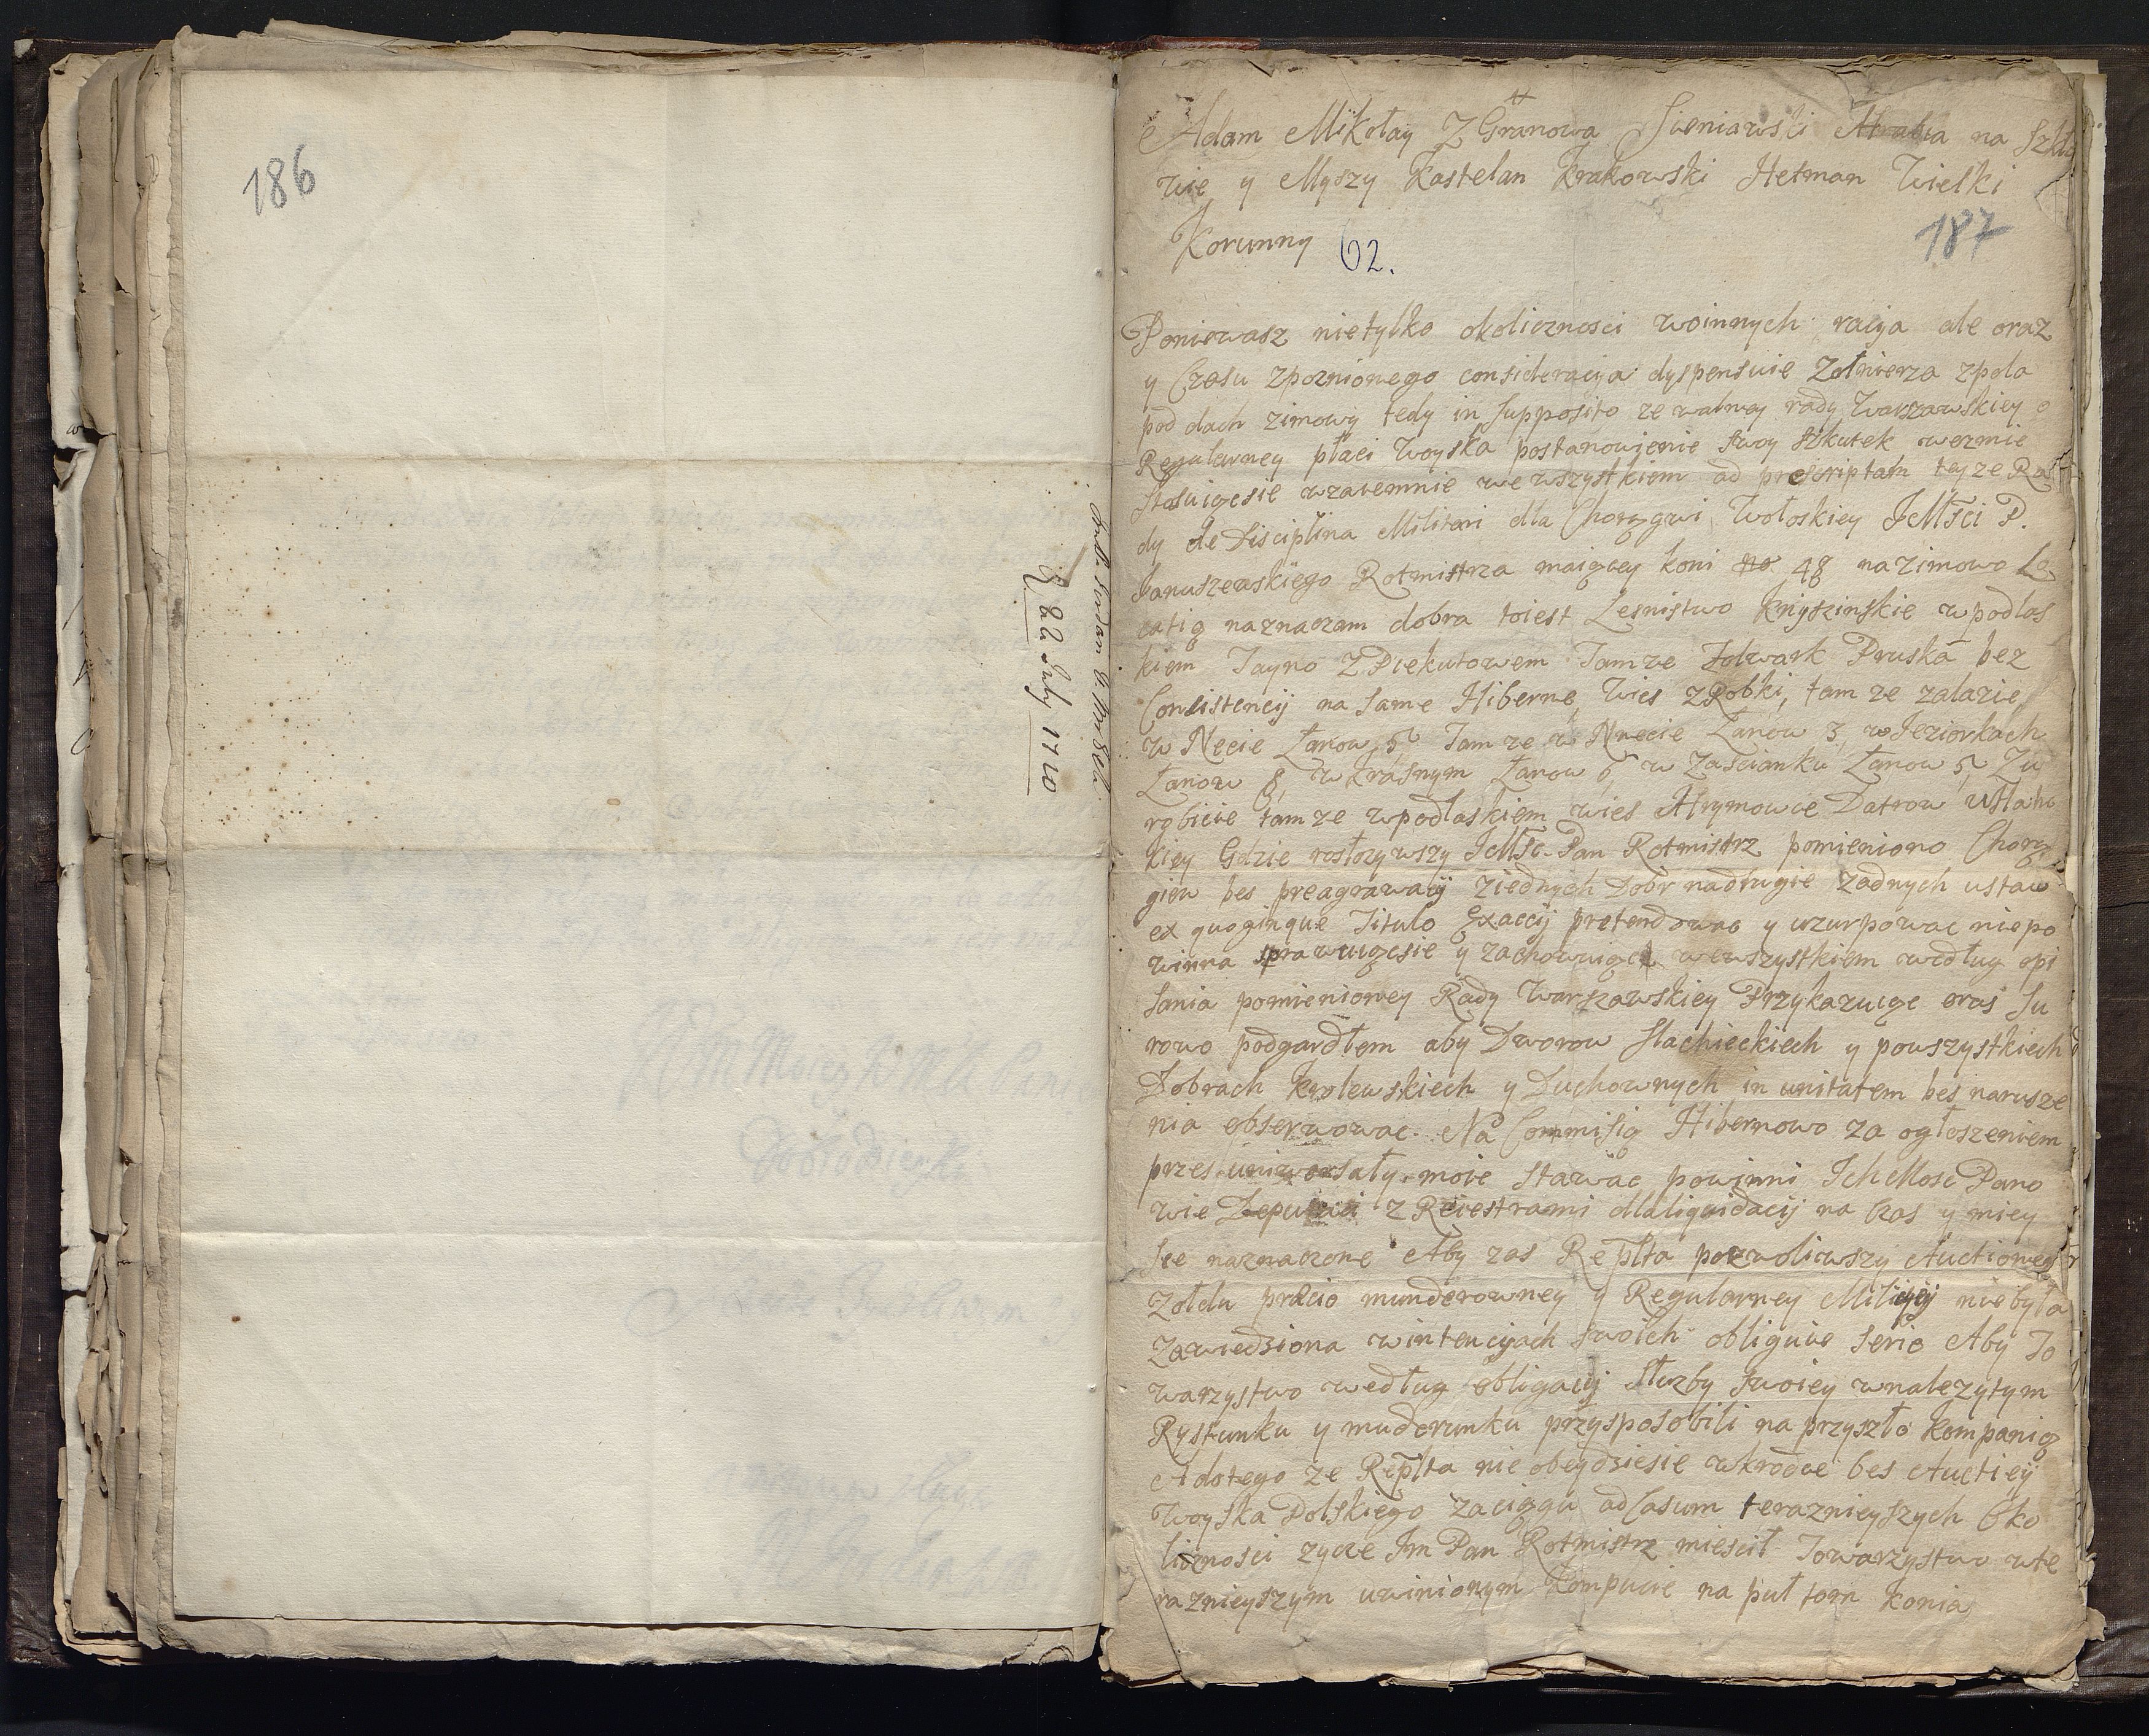 186
22 July 1710
Adam Mikołay Z Granowa Sieniawski Hrabia na Szkło
wie y Myszy Kastelan Krakowski Hetman Wielki
Korunny 62.
187
Poniewasz nietylko okolicznosci woinnych racya ale oraz
y Czasu zpoznionego consideracya dyspensuie Zołnierza zpola
pod dach zimowy tedy in supposito ze walney rady Warszawskiey o
Regularney płaci Woyska postanowienie swoy szkutek wezmie
Stosuiącsie wzaiemnie we wszystkiem ad prescriptam teyze Ra
dy de Disciplina Militari dla Chorągwi Wołoskiey JeMſci P.
Januszewskiego Rotmistrza maiącey koni 48 na zimowo Lo
catią naznaczam dobra toiest Lesnistwo Knyszinskie w podlas
kiem Tayno Z Piekutowem Tamze Folwark Pruska bez
Consistencij na same Hiberne, Wies zRobki, tam ze zalazie,
w Necie Łanow 5 Tam ze w Nnecie Łanow 3, w Jeziorkach
Łanow 8, w Krasnym Łanow 6, w Zascianku Łanow 5, Zu
robicie tamze wpodlaskiem wies Hrymowce Datrow
kiey Gdzie rosłozywszy JeMſc Pan Rotmistrz pomieniono Chorą
giew bes preagrawacij ziednych Dobr nadrugie zadnych ustaw
ex quoqinque Titulo Exaccij pretendowac y uzurpowac niepo
winna sprawuiącsie y zachowuiąc wewszystkiem według opi
sania pomienioney Rady Warszawskiey Przykazuiąc oras su
rowo podgardłem aby Dworow Slachieckiech y powszystkiech
Dobrach Krolewskiech y Duchownych in unitatem bes narusze
nia obserwowac. Na Commisią Hibernowo za ogłoszeniem
przes uniwersały moie stawac powinni IchMosc Pano
wie Deputaci z Reiestrami dlaliquidacij na Czas y miey
sce naznaczone Aby zas Rᵽlta pozwoliwszy Auctioney
Zołdu præcio munderowney y Regularney Milicyij niebyła
Zawiedziona wintencyach swoich obliguie serio Aby To
warzystwo według obligacij słuzby swoiey wnalezytym
Rystunku y muderunku przysposobili na przyszło kompanią
A dotego ze Rᵽlta nie obeydziesie wkrodce bes Auctiey
Woyska Polskiego zaciągu ad Casum teraznieyszych Oko
licznosci zycze Im Pan Rotmistrz miescił Towarzystwo wte
raznieyszym uwinionym kompucie na puł torn konia